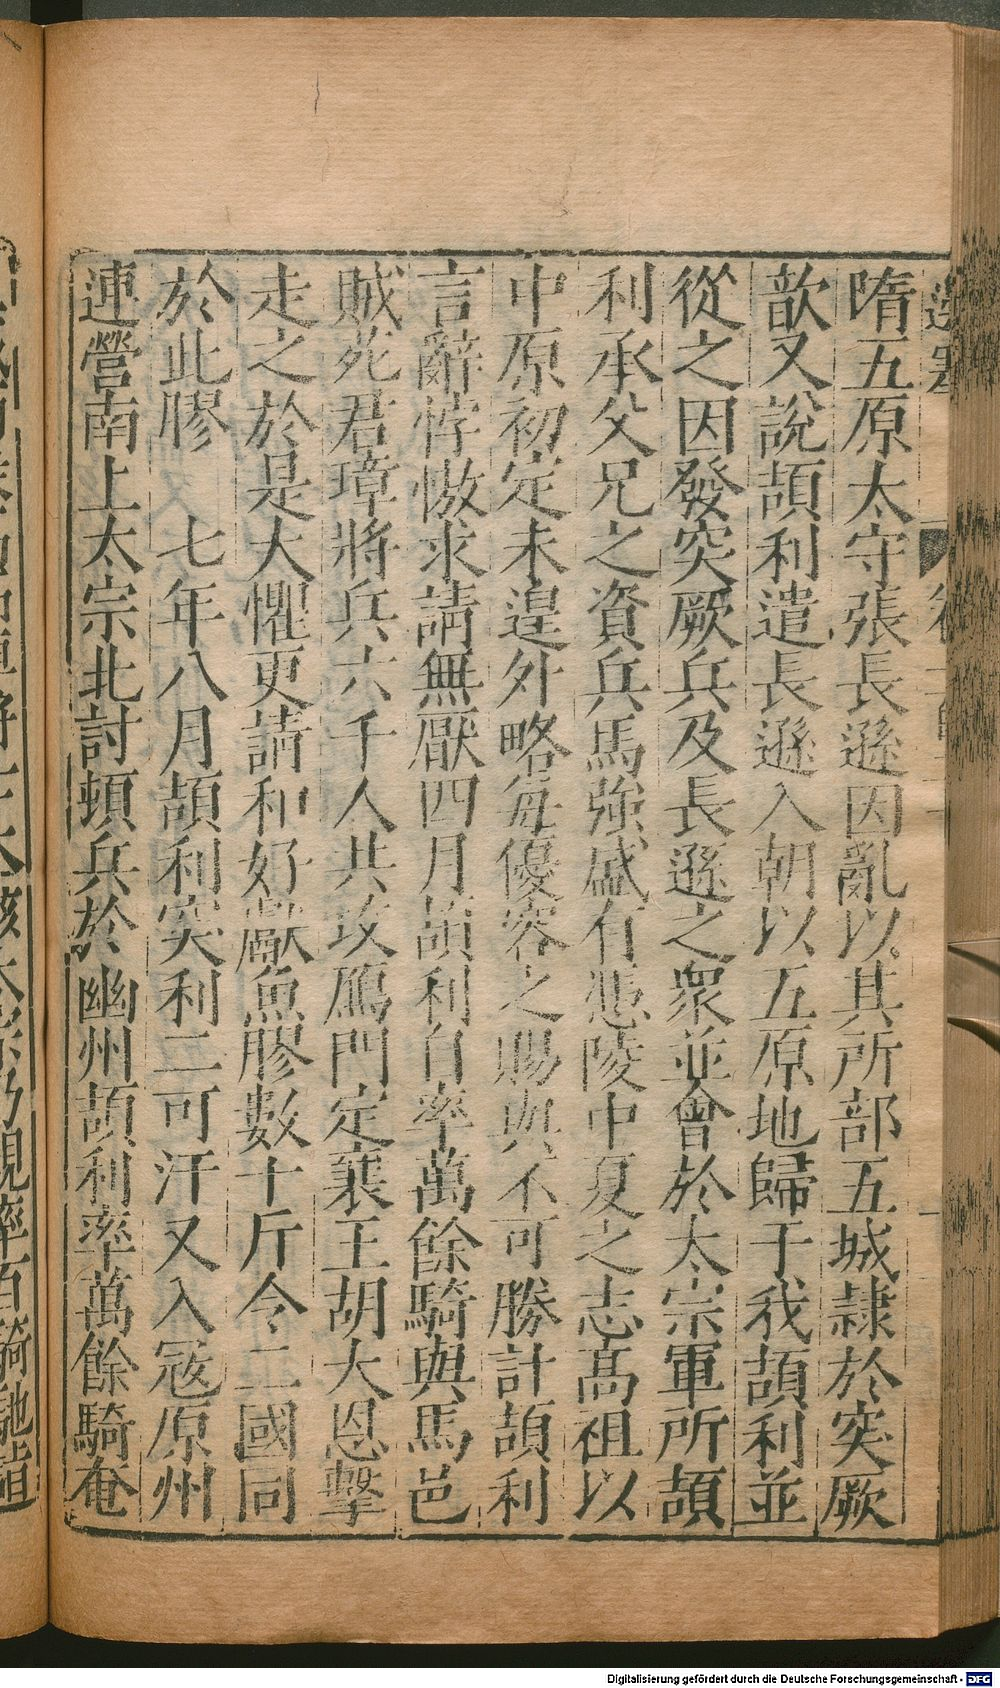 隋五原太守張長遜因亂以其所部五城隷於突厥
歆又說頡利遣長遜入朝以五原地歸于我頡利並
從之因發突厥兵及長遜之衆並會於太宗軍所頡
利承父兄之資兵馬強盛有慿陵中夏之志高祖以
中原初定未遑外略每優容之賜與不可勝計頡利
言辭悖慠求請無厭四月頡利自率萬餘騎與馬邑
賊苑君璋將兵六千人共攻鴈門定襄王胡大恩擊
走之於是大懼更請和好獻魚膠數十斤令二國同
於此膠　七年八月頡利突利二可汗又入寇原州
連營南上太宗北討頓兵於幽州頡利率萬餘騎奄
Digitalisierung gefördert durch die Deutsche Forschungsgemeinschaft - DFG